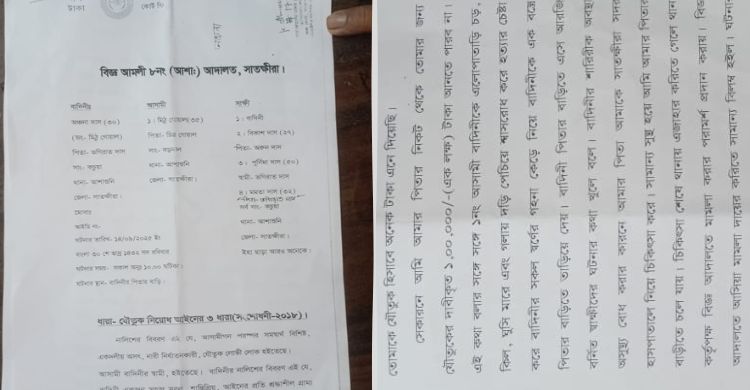 টাকা
কোর্ট ফি
বিজ্ঞ আমলী ৮নং (আশা:) আদালত, সাতক্ষীরা।
বাদিনীর
আসামী
সাক্ষী
অঞ্জনা দাশ (৩০)
১। মিঠু গোয়াল(৩৫)
১। বাদিনী
(জং- মিঠু গোয়াল)
পিতা- মিত্র গোয়াল
২। বিকাশ দাশ (২৭)
পিতা- অধিরাত দাস
পিতা- অরুন দাস
সাং- কচুয়া
৩। পূর্ণিমা দাস (৫০)
থানা- আশাশুনি
থানা- আশাশুনি
স্বামী- অধিরাত দাস
জেলা- সাতক্ষীরা।
জেলা- সাতক্ষীরা।
৪। মমতা দাস (৩২)
মোবাঃ
সর্ব সাং- কচুয়া
আইডি নং-
থানা- আশাশুনি
ঘটনার তারিখ- ১৪/০৯/২০২৫ ইং
জেলা- সাতক্ষীরা।
বাংলা ৩০ শে ভাদ্র ১৪৩২ সন রবিবার
ইহা ছাড়া আরও অনেকে।
ঘটনার সময়- সকাল অনুঃ ১০.০০ ঘটিকা।
ঘটনার স্থান- বাদিনীর পিতার বাড়ি।
ধারা- যৌতুক নিরোধ আইনের ৩ ধারা(সংশোধনী-২০১৮)।
নালিশের বিবরণ এই যে, আসামীগন পরস্পর সমস্বার্থ বিশিষ্ট,
একদলীয় অসৎ, নারী নির্যাতনকারী, যৌতুক লোভী লোক হইতেছে।
আসামী বাদিনীর স্বামী, হইতেছে। বাদিনীর নালিশের বিবরণ এই যে,
আইনের প্রতি শ্রদ্ধাশীল গ্রাম্য
তোমাকে যৌতুক হিসাবে অনেক টাকা এনে দিয়েছি।
সেকারনে আমি আমার পিতার নিকট থেকে তোমার জন্য
যৌতুকের দাবীকৃত ১,০০,০০০/-(এক লক্ষ) টাকা আনতে পারব না।
এই কথা বলার সঙ্গে সঙ্গে ১নং আসামী বাদিনীকে এলোপাতাড়ি চড়,
কিল, ঘুসি মারে এবং গলায় দড়ি পেচিয়ে শ্বাসরোধ করে হত্যার চেষ্টা
করে বাদিনীর সকল স্বর্ণের গহনা কেড়ে নিয়ে বাদিনীকে এক বস্ত্রে
পিতার বাড়িতে তাড়িয়ে দেয়। বাদিনী পিতার বাড়িতে এসে আরজি
বর্নিত স্বাক্ষীদের ঘটনার কথা খুলে বলে। বাদিনীর শারিরীক অবস্থা
অসুস্থ বোধ করার কারনে আমার পিতা আমাকে সাতক্ষীরা সদর
হাসপাতালে নিয়ে চিকিৎসা করে। সামান্য সুস্থ হয়ে আমি আমার পিতার
বাড়ীতে চলে যায়। চিকিৎসা শেষে থানায় এজাহার করিতে গেলে থানা
কর্তৃপক্ষ বিজ্ঞ আদালতে মামলা করার পরামর্শ প্রদান করায়। বিজ্ঞ
আদালতে আসিয়া মামলা দায়ের করিতে সামান্য বিলম্ব হইল। ঘটনা